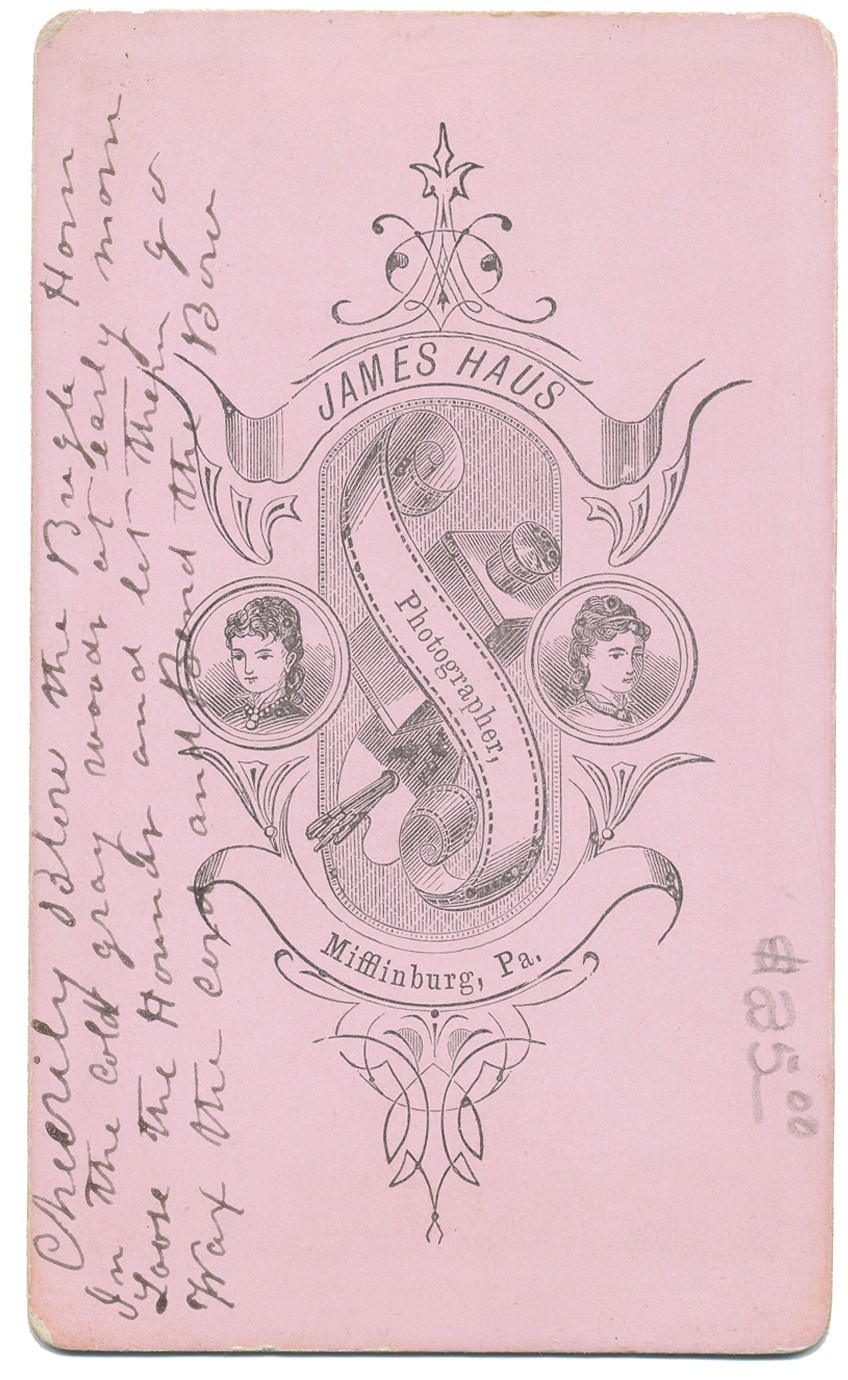 Cheerily Blow the Bugle Horn
In the cold gray woods at early morn
Loose the Hounds and let them go
Wax the cord and Bend the Bow
JAMES HAUS
Photographer,
Mifflinburg, Pa.
$25.00